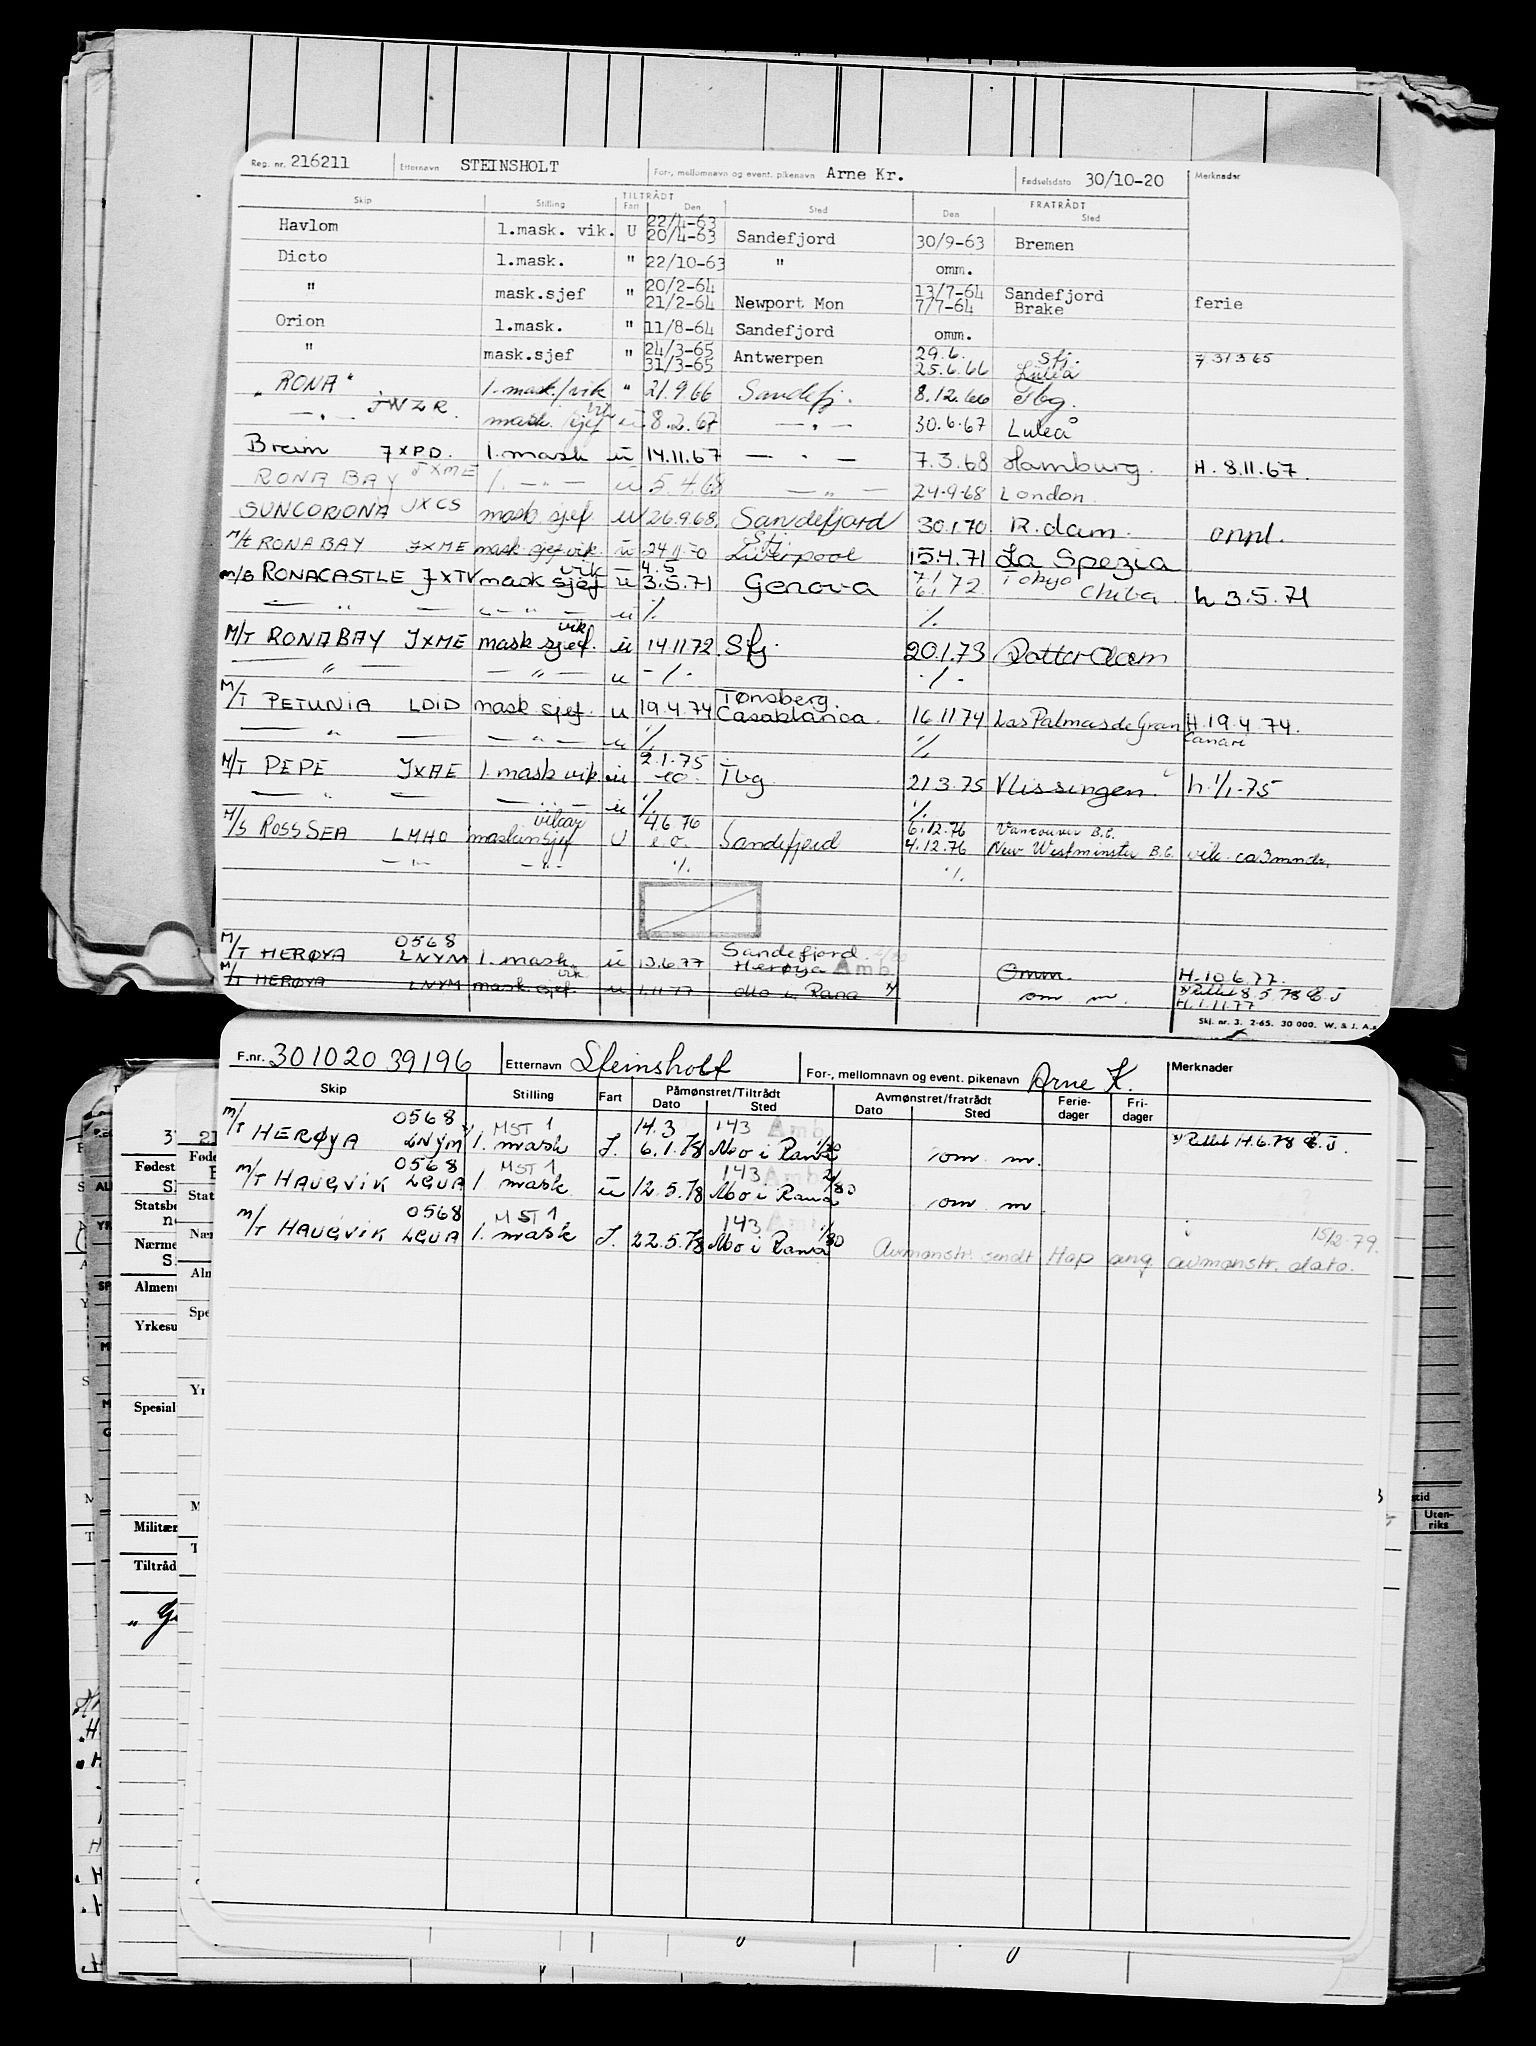 Reg. nr. 216211 Etternavn STEINSHOLT For-, mellomnavn og event. pikenavn Arne Kr. Fødselsdato 30/10-20 Merknader
TILTRÅDT FRATRÅDT
Skip Stilling Fart Den Sted Den Sted
22/4-63
Havlom 1.mask. vik. U 20/4-63 Sandefjord 30/9-63 Bremen
Dicto 1.mask. " 22/10-63 " omm.
20/2-64 13/7-64 Sandefjord
" mask.sjef " 21/2-64 Newport Mon 7/7-64 Brake ferie
Orion 1.mask. " 11/8-64 Sandefjord omm.
24/3-65 29.6. Sfj.
" mask.sjef " 31/3-65 Antwerpen 25.6.66 Luleå 7 31365
"RONA" 1.mask./vik " 21.9.66 Sandefj. 8.12.66 Tbg.
— " — JWZR. mask. sjef vik u 8.2.67 — " — 30.6.67 Luleå
Breim JXPD. 1. mask u 14.11.67 — " — 7.3.68 Hamburg. H. 8.11.67.
RONA BAY JXME 1. — " — u 5.4.68 — " — 24.9.68 London.
SUNCORONA JXCS mask sjef u 26.9.68 Sandefjord 30.1.70 R.dam. oppl.
Sfj.
M/t RONA BAY JXME mask sjef vik. u 24.11.70 Liverpool 15.4.71 La Spezia
vik 4.5 7/1 Tokyo
M/S RONACASTLE JXTV mask sjef u 3.5.71 Genova 6/1 72 Chiba. h 3.5.71
— " — — " — u % %
vik
M/T RONA BAY JXME mask sjef. u 14.11.72 Sfj. 20.1.73 Rotterdam
— " — — " — u -/. -/.
Tønsberg.
M/T PETUNIA LDID mask sjef. u 19.4.74 Casablanca. 16.11.74 Las Palmas de Gran H. 19.4.74.
Canari
— " — — " — u % %
2.1.75
M/T PEPE JXAE 1. mask vik. u eo. Tbg 21.3.75 Vlissingen. h. 1/1-75
— " — — " — u % %
vikar 4.6.76 6.12.76 Vancouver B.C.
M/S ROSS SEA LMHO maskinsjef U e.o. Sandefjord 4.12.76 New Westminster B.C. vik. ca 3 mndr.
— " — — " — % %
0568 Sandefjord.
M/T HERØYA LNYM 1. mask. u 13.6.77 Herøya Amb. Omm. H. 10.6.77.
vik
M/T HERØYA LNYM mask. sjef u 1.11.77 Mo i Rana om m. Rettet 8.5.78 E.J
H. 1.11.77
Skj. nr. 3. 2-65. 30 000. W. & J. A.s
F.nr. 301020 39196 Etternavn Steinsholt For-, mellomnavn og event. pikenavn Arne K. Merknader
Skip Stilling Fart Påmønstret/Tiltrådt Avmønstret/fratrådt Ferie-dager Fri-dager
Dato Sted Dato Sted
0568 MST 1 14.3 143 Amb
M/T HERØYA LNYM 1. mask J. 6.1.78 Mo i Rana 1/80 om m. Rettet 14.6.78 E.J.
0568 MST 1 143 Amb
M/T HAUGVIK LGUA 1. mask u 12.5.78 Mo i Rana 2/80 om m
0568 MST 1 143 Amb
M/T HAUGVIK LGUA 1. mask J. 22.5.78 Mo i Rana 1/80 15/2-79.
Avmønstr. sendt Hap ang avmønstr. dato.
Fødest
Statsbo
Nærme
Almen
Yrkesu
Spesial
Militær
Tiltråd
Uten-
riks